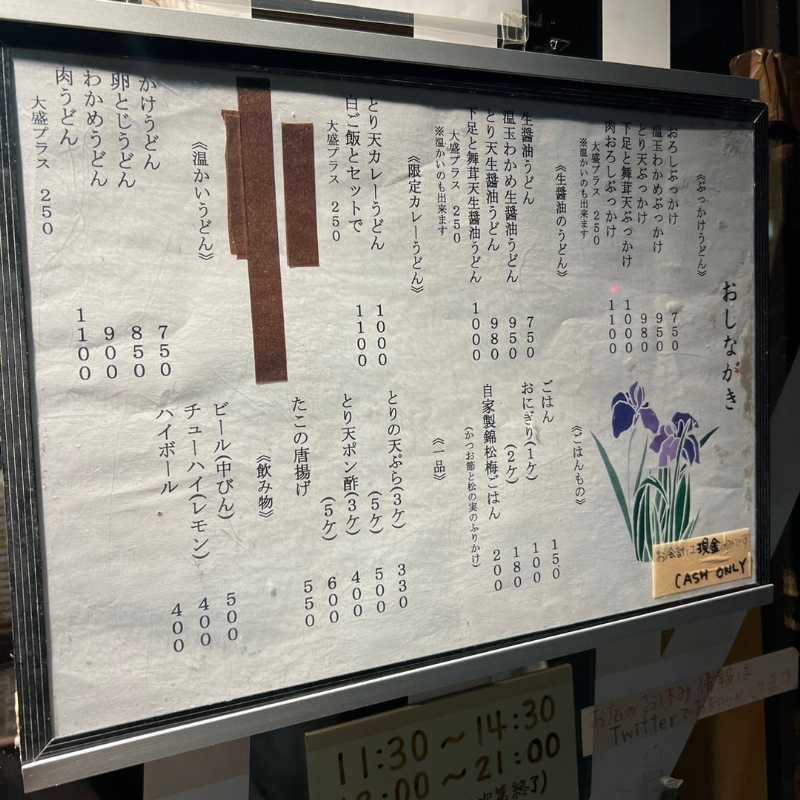 おしながき
《ぶっかけうどん》
おろしぶっかけ 750
温玉わかめぶっかけ 950
とり天ぶっかけ 980
下足と舞茸天ぶっかけ 1000
肉おろしぶっかけ 1100
大盛プラス 250
※温かいのも出来ます
《生醤油のうどん》
生醤油うどん 750
温玉わかめ生醤油うどん 950
とり天生醤油うどん 980
下足と舞茸天生醤油うどん 1000
大盛プラス 250
※温かいのも出来ます
《限定カレーうどん》
とり天カレーうどん 1000
白ご飯とセットで 1100
大盛プラス 250
《温かいうどん》
かけうどん 750
卵とじうどん 850
わかめうどん 900
肉うどん 1100
大盛プラス 250
《ごはんもの》
ごはん 150
おにぎり(1ケ) 100
(2ケ) 180
自家製錦松梅ごはん 200
(かつお節と松の実のふりかけ)
《一品》
とりの天ぷら(3ケ) 330
(5ケ) 500
とり天ポン酢(3ケ) 400
(5ケ) 600
たこの唐揚げ 550
《飲み物》
ビール(中びん) 500
チューハイ(レモン) 400
ハイボール 400
お会計は現金
CASH ONLY
11:30～14:30
:00～21:00
終了)
お店のお休み情報は
Twitterで